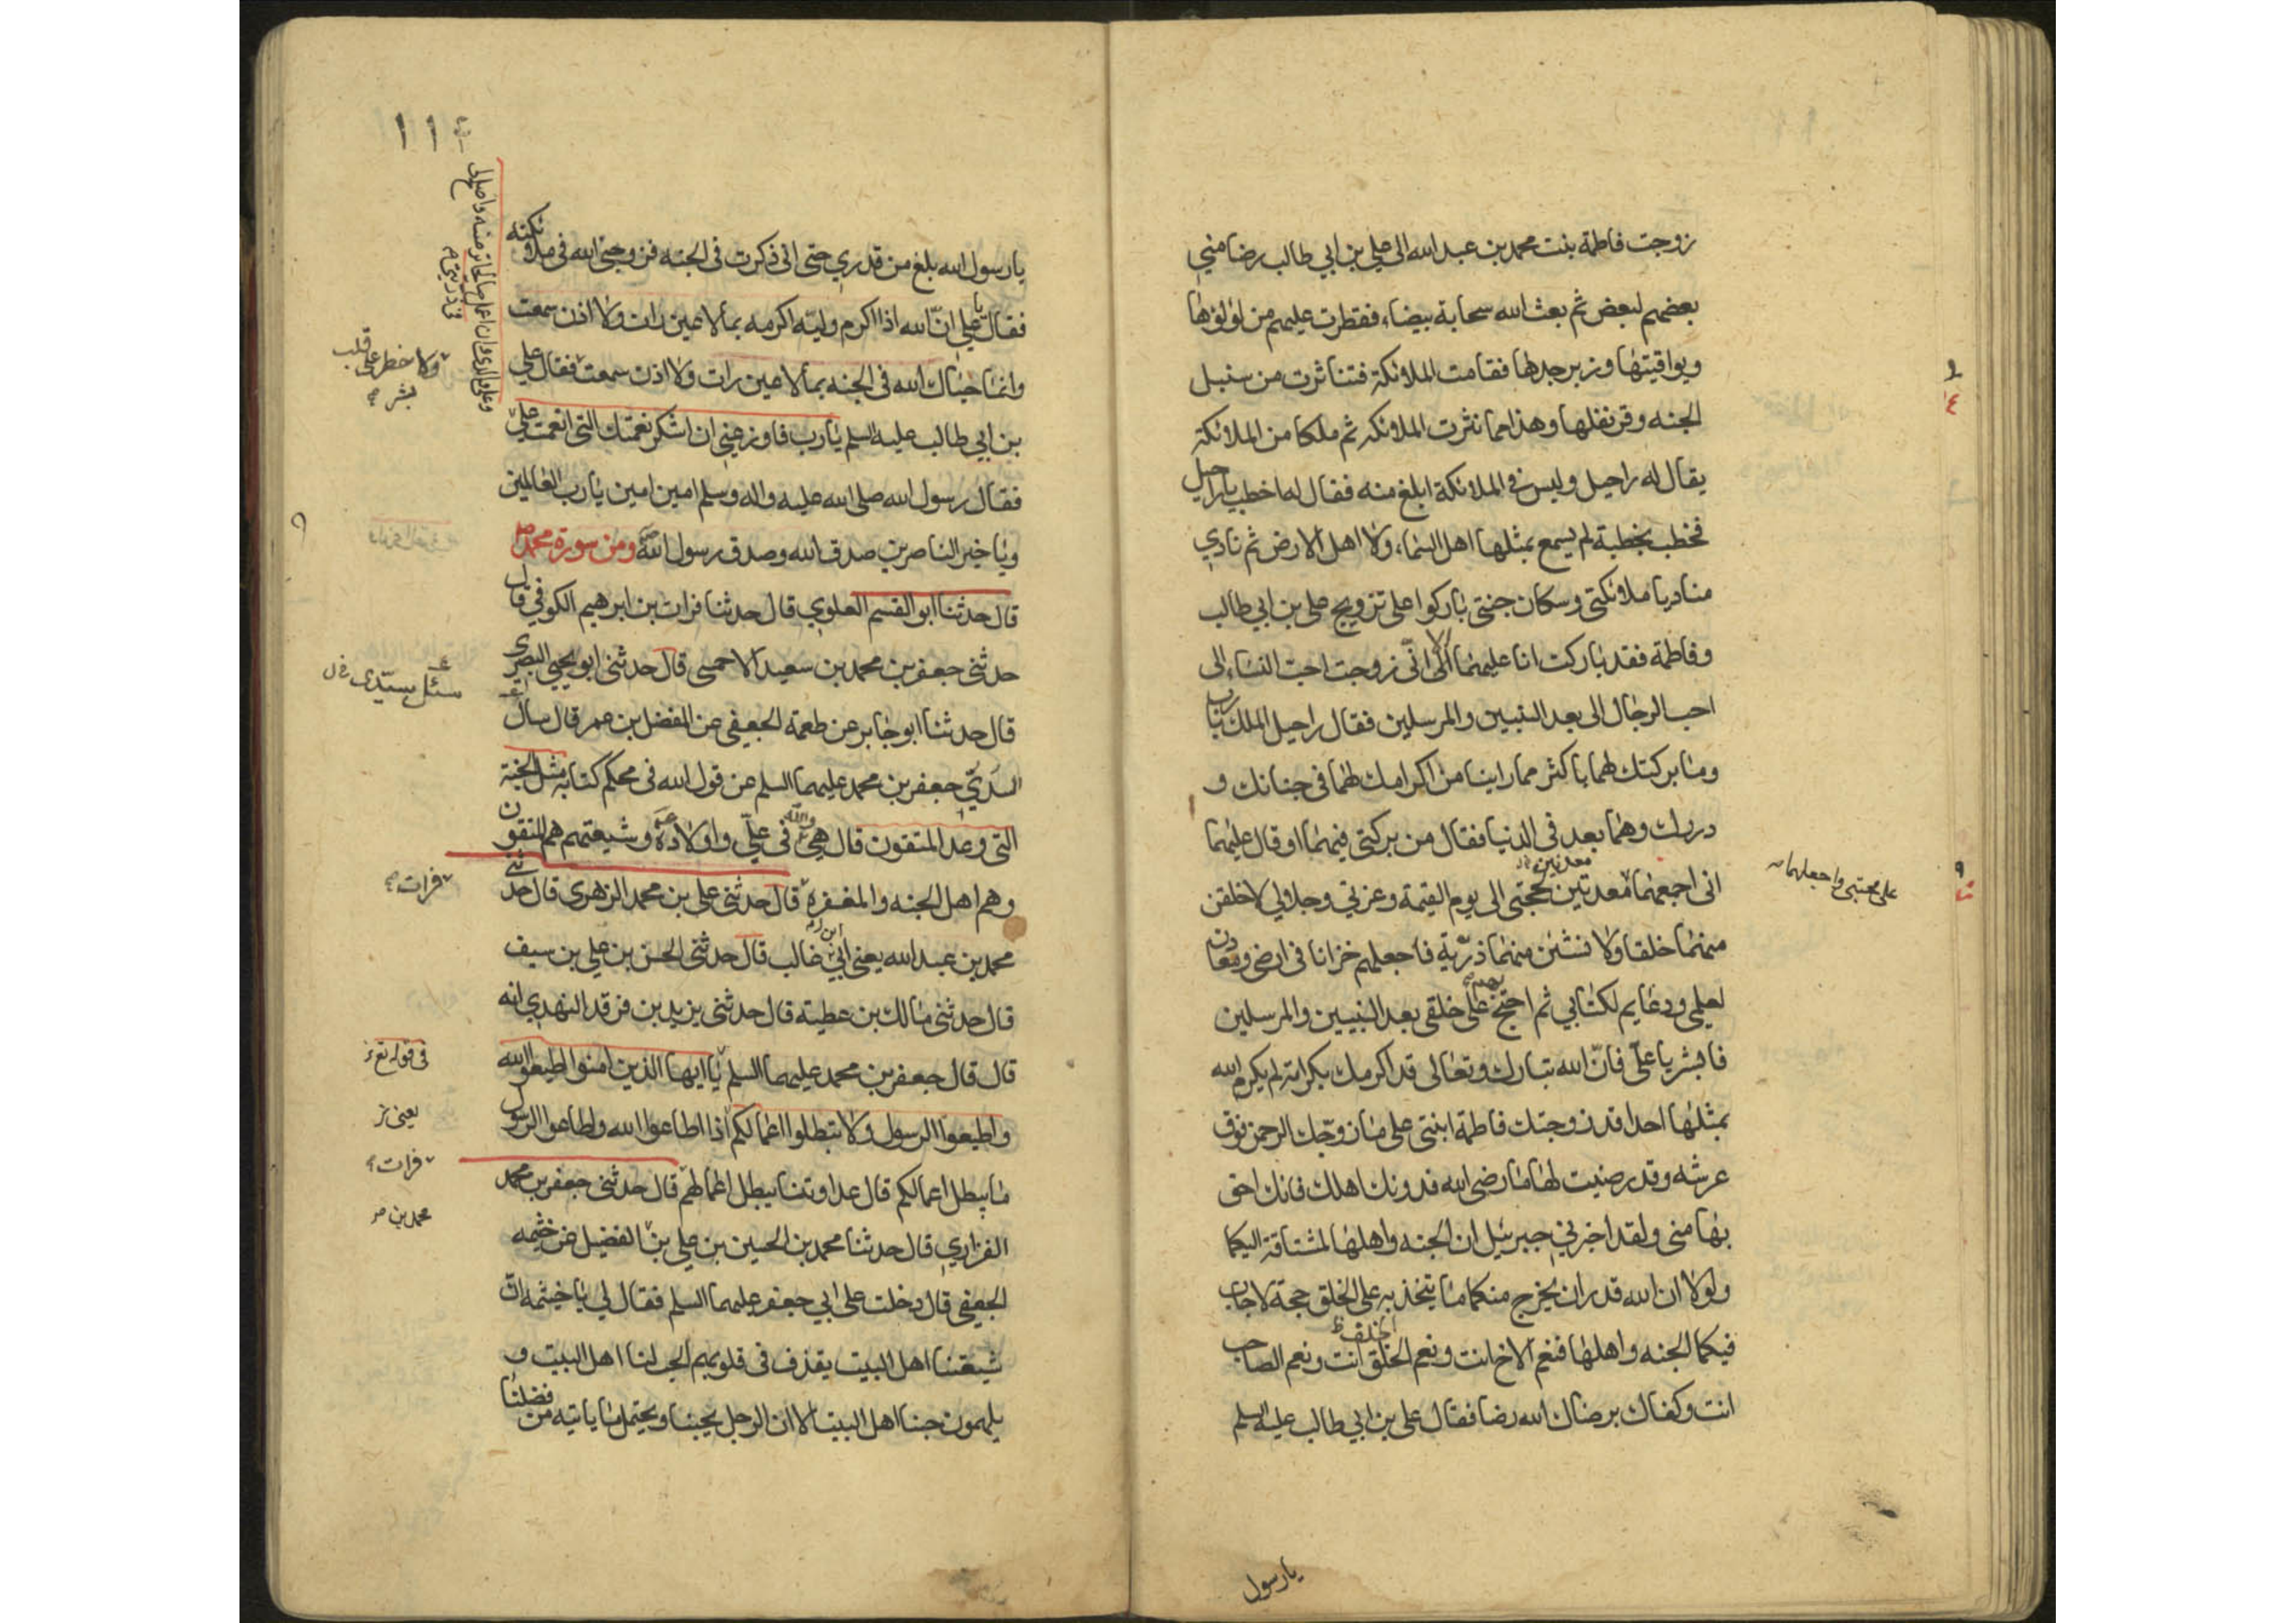 زوجت فاطمة بنت محمد بن عبد الله الى علي بن ابي طالب رضا مني
بعضهم لبعض ثم بعث الله سحابة بيضاء فقطرت عليهم من لؤلؤها
ويواقيتها وزبرجدها فقامت الملائكة فتناثرت من سنبل
الجنه وقرنفلها وهذا مما نثرت الملائكه ثم ملكا من الملائكة
يقال له راحيل وليس في الملائكة ابلغ منه فقال له اخطب يا راحيل
فخطب بخطبة لم يسمع بمثلها اهل السماء ولا اهل الارض ثم نادي
مناد يا ملائكتي وسكان جنتي باركوا على تزويج علي بن ابي طالب
وفاطمة فقد باركت انا عليهما الا اني زوجت احب النساء الى
احب الرجال الى بعد النبيين والمرسلين فقال راحيل الملك يا رب
وما بركتك لهما باكثر مما راينا من اكرامك لهما في جنانك و
دارك وهما بعد في الدنيا فقال من بركتي فيهما او قال عليهما
اني اجمعهما معدنين لحجتي الى يوم القيمة وعزتي وجلالي لاخلقن
على محبتي واجعلهما
منهما خلقا ولا نشئن منهما ذرية فاجعلهم خزانا في ارضي ومعادن
لعلمي ودعايم لكتابي ثم احتج على خلقي بعد النبيين والمرسلين
بهم
فابشر يا علي فان الله تبارك وتعالى قد اكرمك بكرامة لم يكرم الله
بمثلها احدا قد زوجتك فاطمة ابنتي على ما زوجك الرحمن فوق
عرشه وقد رضيت لها ما رضي الله فدونك اهلك فانك احق
بها مني ولقد اخبرني جبرئيل ان الجنه واهلها لمشتاقة اليكما
ولولا ان الله قدر ان يخرج منكما ما يتخذ به على الخلق حجة لاجاب
فيكما الجنه واهلها فنعم الاخ انت ونعم الختن انت ونعم الصاحب
انت وكفاك برضاك الله رضا فقال علي بن ابي طالب عليه السلم
يا رسول
١١
يا رسول الله بلغ من قدري حتى اني ذكرت في الجنه فزوجني الله في ملائكته
فقال يا علي ان الله اذا اكرم وليه اكرمه بما لا عين رات ولا اذن سمعت
ولا خطر على قلب
بشر
وانما حباك الله في الجنه بما لا عين رات ولا اذن سمعت فقال علي
بن ابي طالب عليه السلم يا رب فاوزعني ان اشكر نعمتك التي انعمت علي
وعلى والدي وان اعمل صالحا ترضيه واصلح لي
في ذريتي
فقال رسول الله صلى الله عليه واله وسلم امين امين يا رب العالمين
ويا خير الناصرين صدق الله وصدق رسول الله ومن سورة محمد
قال حدثنا ابو القسم العلوي قال حدثنا فرات بن ابرهيم الكوفي قال
حدثني جعفر بن محمد بن سعيد الاحمسي قال حدثني ابو يحيي البصري
قال حدثنا ابو جابر عن طعمة الجعفي عن المفضل بن عمر قال سال
سئل سيدي
السدي جعفر بن محمد عليهما السلم عن قول الله في محكم كتابه مثل الجنة
التي وعد المتقون قال هي والله في علي واولاده وشيعتهم هم المتقون
وهم اهل الجنه والمغفرة قال حدثني علي بن محمد الزهري قال حدثني
فرات
محمد بن عبد الله يعني ابن ابي غالب قال حدثني الحسن بن علي بن سيف
قال حدثني مالك بن عطية قال حدثني يزيد بن فرقد النهدي انه
قال قال جعفر بن محمد عليهما السلم يا ايها الذين امنوا اطيعوا الله
في قوله تع
واطيعوا الرسول ولا تبطلوا اعمالكم اذا اطاعوا الله واطاعوا الرسول
يعني
ما يبطل اعمالكم قال عداوتنا يبطل اعمالهم قال حدثني جعفر بن محمد
فرات
الفزاري قال حدثنا محمد بن الحسين بن علي بن الفضيل عن خثيمه
محمد بن
الجعفي قال دخلت على ابي جعفر عليهما السلم فقال لي يا خيثمه ان
شيعتنا اهل البيت يقذف في قلوبهم الحب لنا اهل البيت و
يلهمون حبنا اهل البيت الا ان الرجل يحبنا ويحتمل ما ياتيه من فضلنا